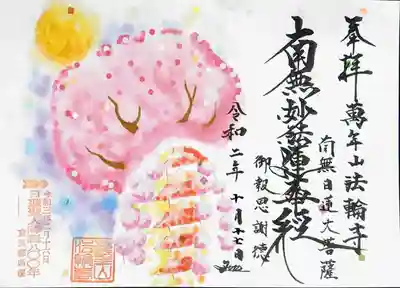 奉拝 萬年山法輪寺
南無日蓮大菩薩
南無妙法蓮華経
御報恩謝徳
令和二年 十月十七日
令和三年二月十六日
日蓮聖人降誕八〇〇年